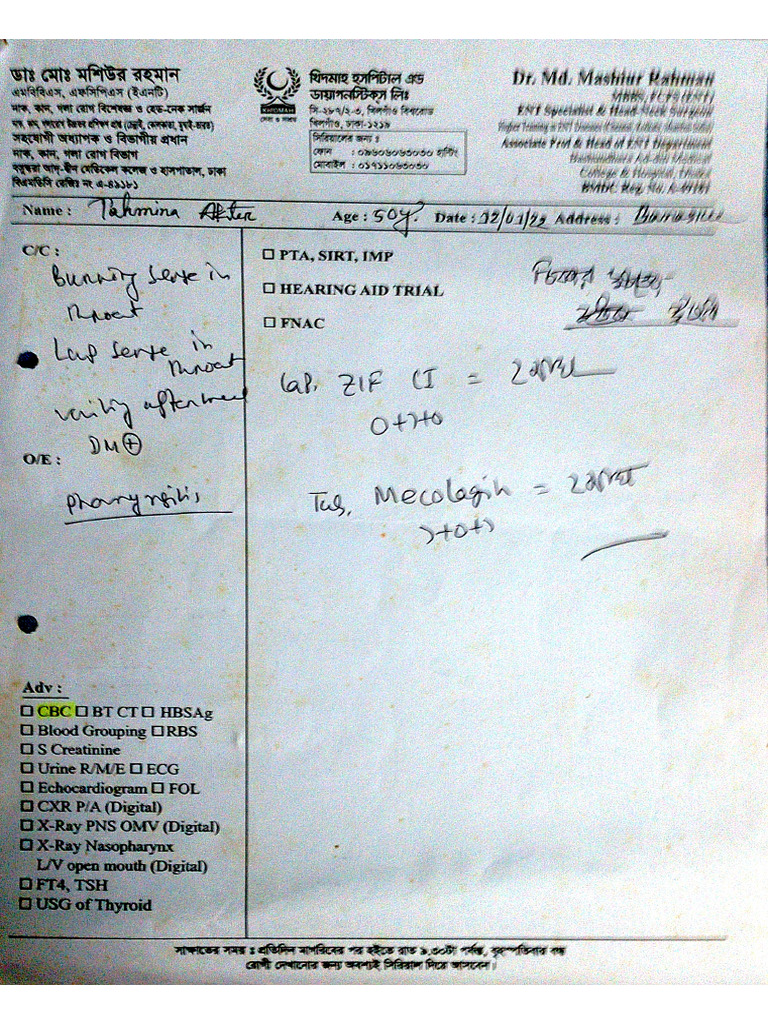 ডাঃ মোঃ মশিউর রহমান
এমবিবিএস, এফসিপিএস (ইএনটি)
নাক, কান, গলা রোগ বিশেষজ্ঞ ও হেড-নেক সার্জন
সহযোগী অধ্যাপক ও বিভাগীয় প্রধান
নাক, কান, গলা রোগ বিভাগ
বসুন্ধরা আদ্-দ্বীন মেডিকেল কলেজ ও হাসপাতাল, ঢাকা
বিএমডিসি রেজিঃ নং এ-৪৯১৮১
KHIDMAH
সেবা ও সততা
খিদমাহ হসপিটাল এন্ড
ডায়াগনস্টিকস লিঃ
সি-২৮৭/২-৩, খিলগাঁও বিশ্বরোড
খিলগাঁও, ঢাকা-১২১৯
সিরিয়ালের জন্য :
ফোন : ০৯৬০৬০৬৩০৩০ হান্টিং
মোবাইল : ০১৭১১০৬৩০৩০
Dr. Md. Mashiur Rahman
MBBS, FCPS (ENT)
ENT Specialist & Head-Neck Surgeon
Associate Prof & Head of ENT Department
Bashundhara Ad-din Medical
College & Hospital, Dhaka
BMDC Reg. No. A-49181
Name : Tahmina Akter Age : 50y. Date : 12/01/22 Address :
C/C :
Burning sense in
throat
Lup sense in
throat
after meal
DM (+)
O/E :
Pharyngitis
PTA, SIRT, IMP
HEARING AID TRIAL
FNAC
Cap. ZIF CI =
০+১+০
Tab. Mecolagin =
১+০+১
Adv :
CBC BT CT HBSAg
Blood Grouping RBS
S Creatinine
Urine R/M/E ECG
Echocardiogram FOL
CXR P/A (Digital)
X-Ray PNS OMV (Digital)
X-Ray Nasopharynx
L/V open mouth (Digital)
FT4, TSH
USG of Thyroid
সাক্ষাতের সময় : প্রতিদিন মাগরিবের পর হইতে রাত ৯.৩০টা পর্যন্ত, বৃহস্পতিবার বন্ধ
রোগী দেখানোর জন্য অবশ্যই সিরিয়াল দিয়ে আসবেন।